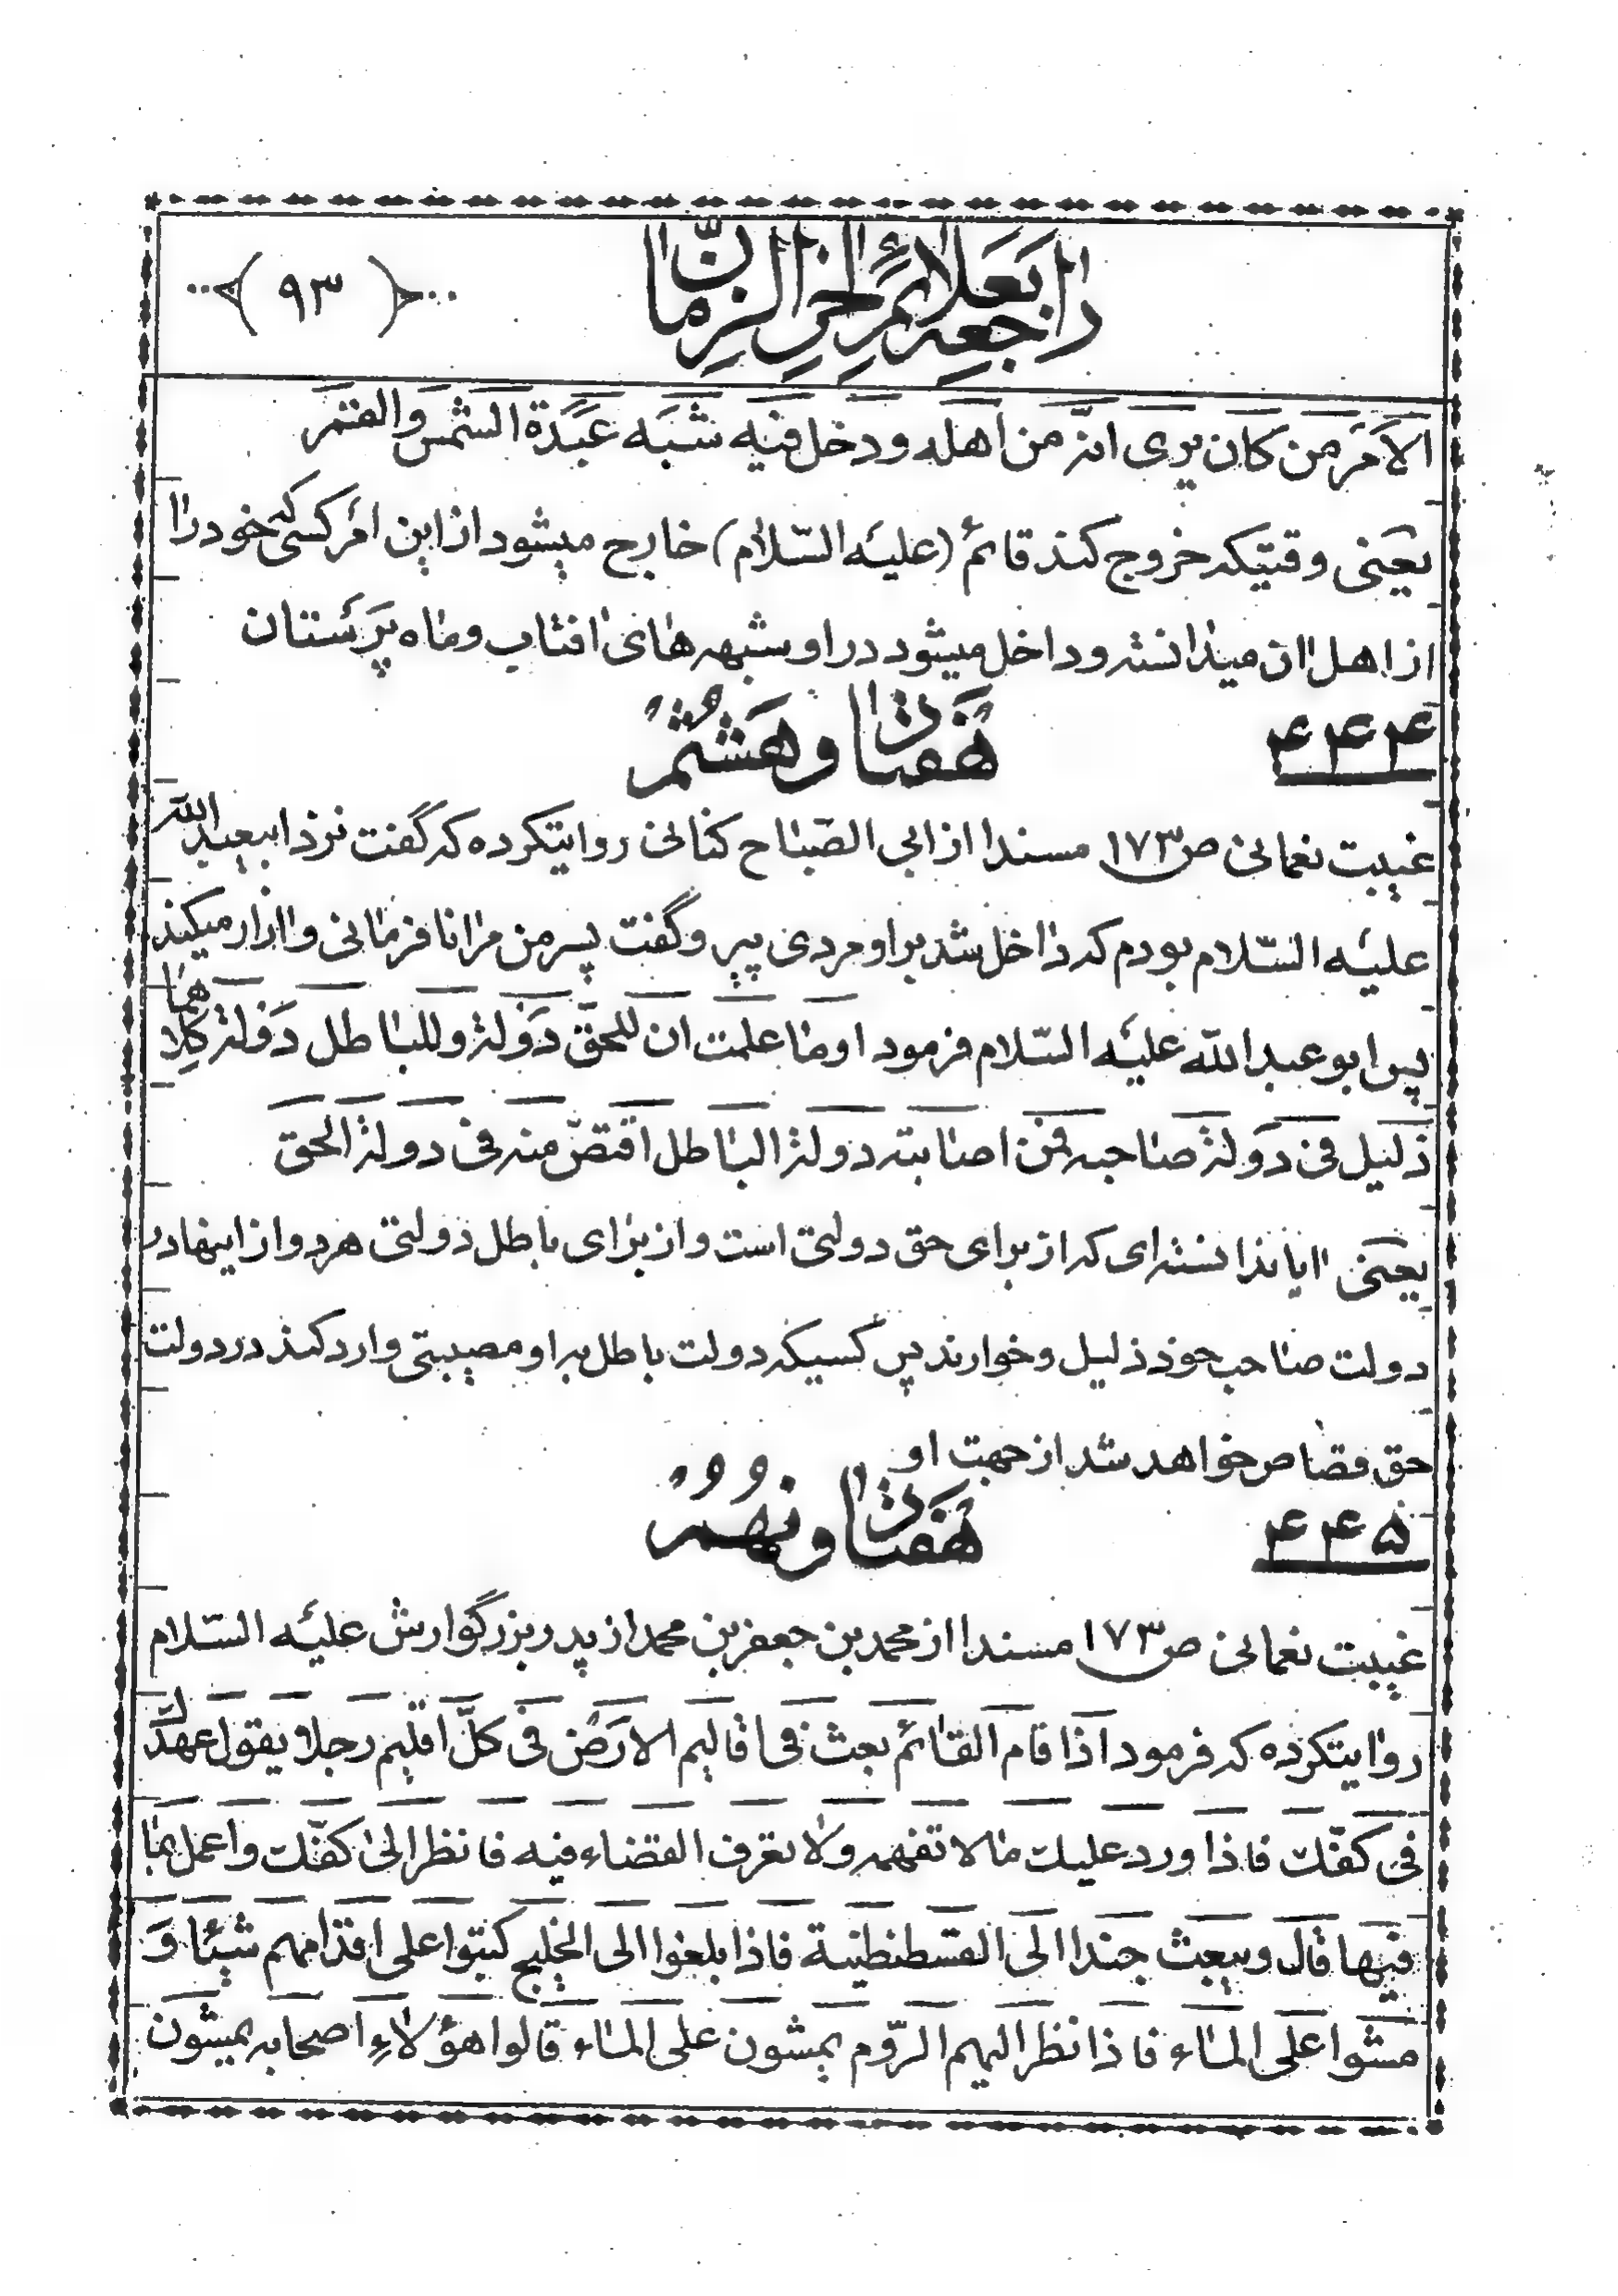 راجعه بعلائم اخر الزمان
﴿ ۹۳ ﴾
الامر من كان يرى انه من اهله و دخل فيه شبه عبدة الشمس والقمر
یعنی وقتیکه خروج کند قائم (علیه السّلام) خارج میشود از این امر کسی که خود را
از اهل ان میدانسته و داخل میشود در او شبهه های افتاب و ماه پرستان
۴۴۴
هفتاد و هشتم
غیبت نعمانی ص ۱۷۳ مسندا از ابی الصّباح کنانی روایتکرده که گفت نزد ابیعبد الله
علیه السّلام بودم که داخل شد بر او مردی پیر و گفت پسر من مرا نافرمانی و ازار میکند
پس ابو عبد الله علیه السّلام فرمود او ما علمت ان للحقّ دولة و للباطل دولة کلاهما
ذليل فى دولة صاحبه فمن اصابته دولة الباطل اقتصّ منه فى دولة الحق
یعنی ایا ندانسته ای که از برای حق دولتی است و از برای باطل دولتی هر دو از اینها در
دولت صاحب خود ذلیل و خوارند پس کسیکه دولت باطل به او مصیبتی وارد کند در دولت
حق قصاص خواهد شد از جهت او
۴۴۵
هفتاد و نهم
غیبت نعمانی ص ۱۷۳ مسندا از محمد بن جعفر بن محمد از پدر بزرگوارش علیه السّلام
روایتکرده که فرمود اذا قام القائم بعث فى اقاليم الارض فى كلّ اقليم رجلا يقول عهدك
فى كفّك فاذا ورد عليك ما لا تفهمه ولا تعرف القضاء فيه فانظر الى كفّك واعمل بما
فيها قال ويبعث جندا الى القسطنطنية فاذا بلغوا الى الخليج كتبوا على اقدامهم شيئا و
مشوا على الماء فاذا نظر اليهم الرّوم يمشون على الماء قالوا هؤلاء اصحابه يمشون